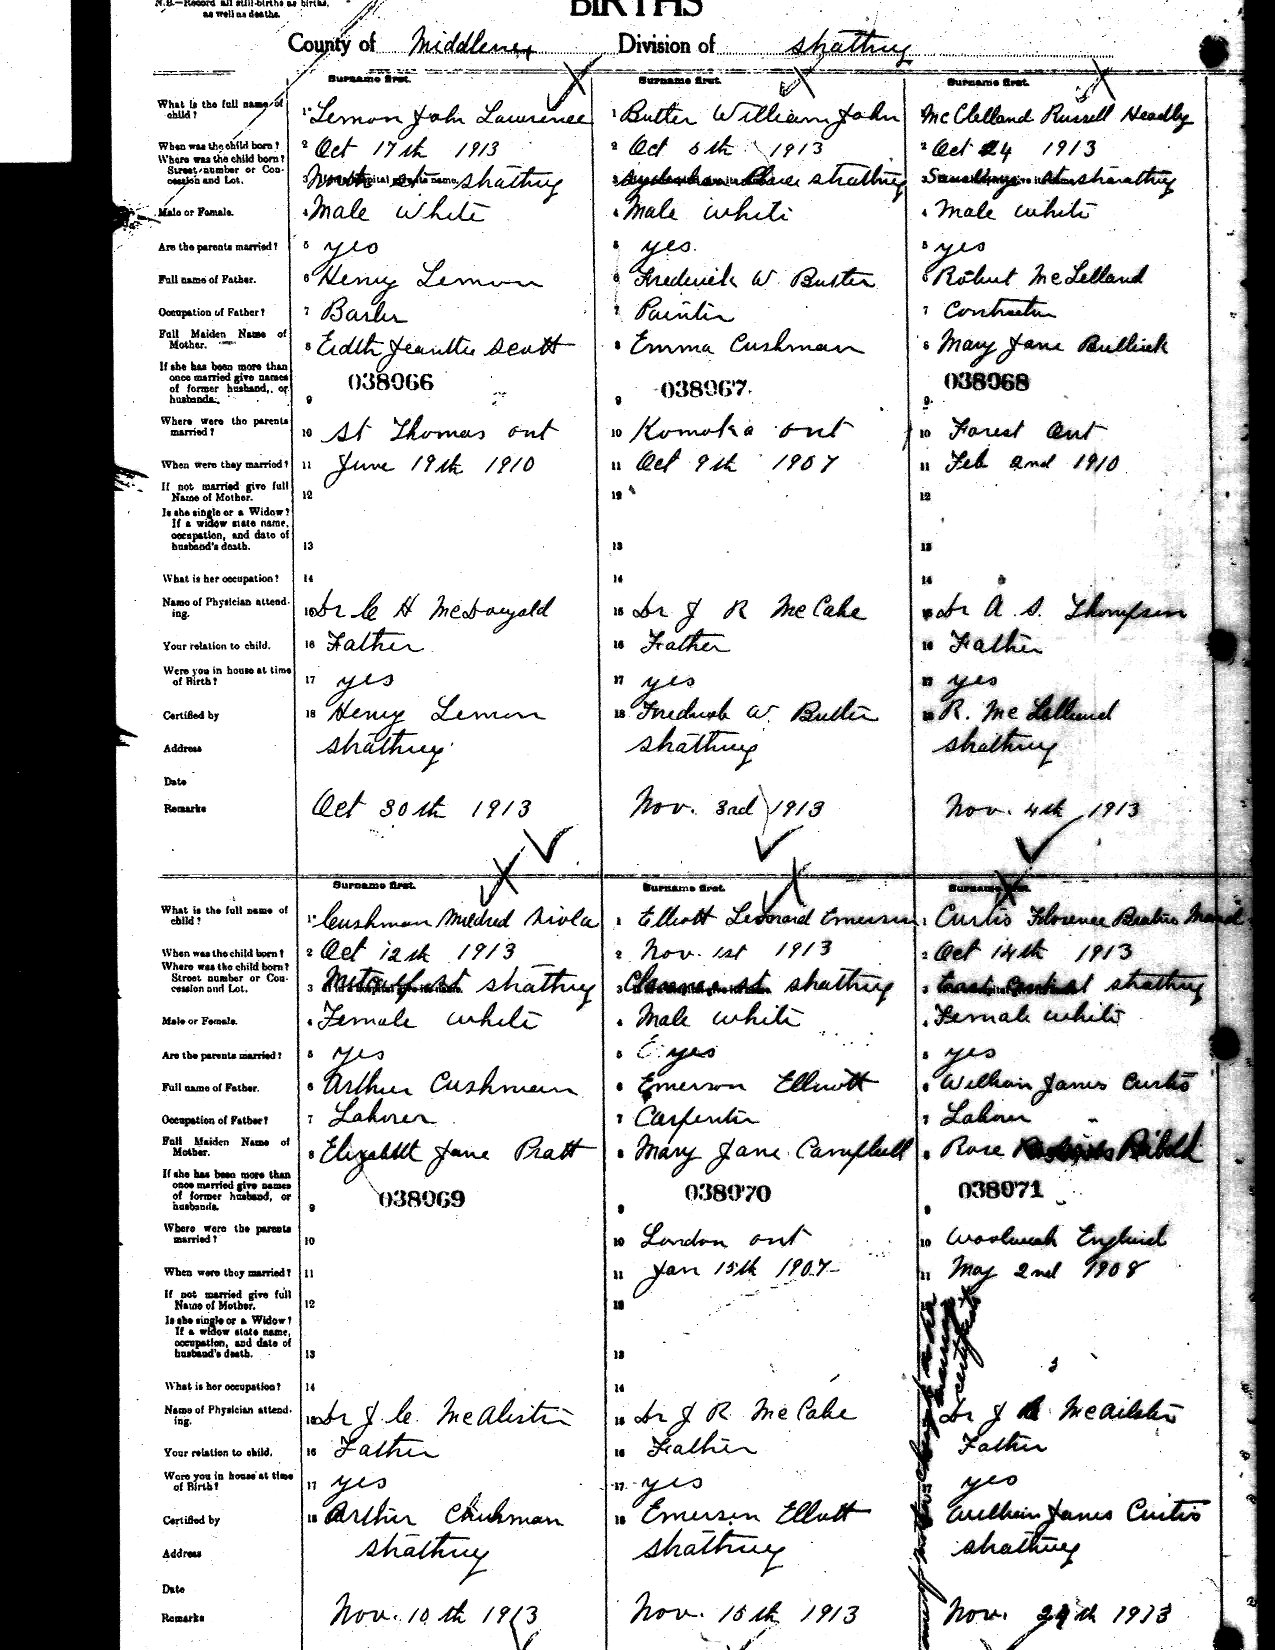 N.B.—Record all still-births as births,
as well as deaths.
BIRTHS
County of Middlesex Division of Strathroy
Surname first. Surname first. Surname first.
What is the full name of child? 1 Lemon John Lawrence 1 Butler William John McClelland Russell Headly
When was the child born? 2 Oct 17th 1913 2 Oct 5th 1913 2 Oct 24 1913
Where was the child born? Street number or Concession and Lot. 3 North st Strathroy 3 Strathroy 3 st Strathroy
Male or Female. 4 Male White 4 Male white 4 Male white
Are the parents married? 5 yes 5 yes. 5 yes
Full name of Father. 6 Henry Lemon 6 Frederick W. Butler 6 Robert McLelland
Occupation of Father? 7 Barber 7 Painter 7 Contractor
Full Maiden Name of Mother. 8 Eidth Jeanttie Scott 8 Emma Cushman 8 Mary Jane Bullick
If she has been more than once married give names of former husband, or husbands. 9 038066 9 038067 9 038068
Where were the parents married? 10 St Thomas ont 10 Komoka ont 10 Forest Ont
When were they married? 11 June 19th 1910 11 Oct 9th 1907 11 Feb 2nd 1910
If not married give full Name of Mother. 12 12 12
Is she single or a Widow? If a widow state name, occupation, and date of husband's death. 13 13 13
What is her occupation? 14 14 14
Name of Physician attending. 15 Dr C H McDougald 15 Dr J R McCabe 15 Dr A. S. Thompson
Your relation to child. 16 Father 16 Father 16 Father
Were you in house at time of Birth? 17 yes 17 yes 17 yes
Certified by 18 Henry Lemon 18 Fredrick W. Butler 18 R. McLelland
Address Strathroy Strathroy Strathroy
Date
Remarks Oct 30th 1913 Nov. 3rd 1913 Nov. 4th 1913
Surname first. Surname first. Surname first.
What is the full name of child? 1 Cushman Mildred Viola 1 Elliott Leonard Emerson 1 Curtis Florence Beatris Maud
When was the child born? 2 Oct 12th 1913 2 Nov. 1st 1913 2 Oct 14th 1913
Where was the child born? Street number or Concession and Lot. 3 Metcalfe st Strathroy 3 st Strathroy 3 st Strathroy
Male or Female. 4 Female white 4 Male white 4 Female white
Are the parents married? 5 yes 5 yes 5 yes
Full name of Father. 6 Arthur Cushman 6 Emerson Elliott 6 William James Curtis
Occupation of Father? 7 Laborer 7 Carpenter 7 Labour
Full Maiden Name of Mother. 8 Elizabeth Jane Pratt 8 Mary Jane Campbell 8 Rose
If she has been more than once married give names of former husband, or husbands. 9 038069 9 038070 9 038071
Where were the parents married? 10 10 London ont 10 Woolwich England
When were they married? 11 11 Jan 15th 1907 11 May 2nd 1908
If not married give full Name of Mother. 12 12
Is she single or a Widow? If a widow state name, occupation, and date of husband's death. 13 13
What is her occupation? 14 14
Name of Physician attending. 15 Dr J. C. McAlister 15 Dr J R McCabe Dr J McAilster
Your relation to child. 16 Father 16 Father Father
Were you in house at time of Birth? 17 yes 17 yes 17 yes
Certified by 18 Arthur Chushman 18 Emerson Elliott William James Curtis
Address Strathroy Strathroy Strathroy
Date
Remarks Nov. 10th 1913 Nov. 15th 1913 Nov. 29th 1913